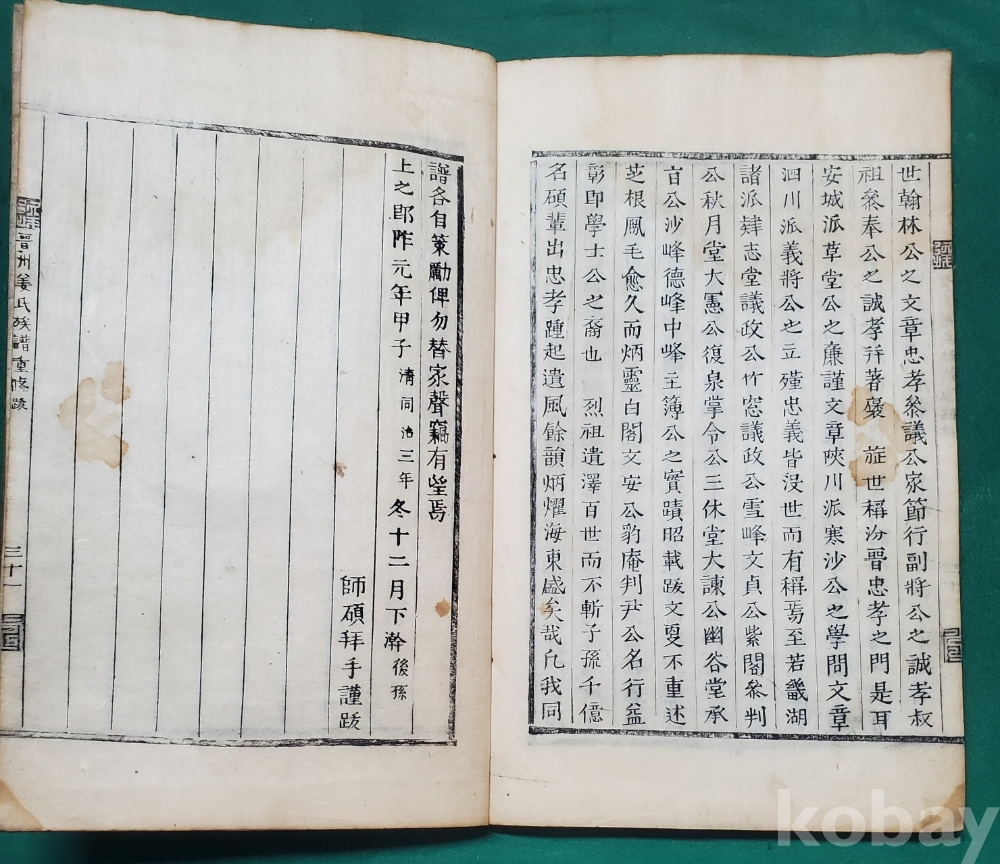 世翰林公之文章忠孝叅議公家節行副將公之誠孝叔
祖叅奉公之誠孝幷著褒 㫌世稱汾晉忠孝之門是耳
安城派草堂公之廉謹文章陜川派寒沙公之學問文章
泗川派義將公之立殣忠義皆沒世而有稱焉至若畿湖
諸派肄志堂議政公竹窓議政公雪峰文貞公紫閣叅判
公秋月堂大憲公復泉掌令公三休堂大諫公幽谷堂承
旨公沙峰德峰中峰主簿公之實蹟昭載跋文更不重述
芝根鳳毛愈久而炳靈白閣文安公豹庵判尹公名行益
彰即學士公之裔也 烈祖遺澤百世而不斬子孫千億
名碩輩出忠孝踵起遺風餘韻炳燿海東盛矣哉凡我同
譜各自策勵俾勿替家聲竊有望焉
上之卽阼元年甲子淸同治三年冬十二月下澣後孫
師碩拜手謹跋
晋州姜氏族譜重修跋
三十一
kobay